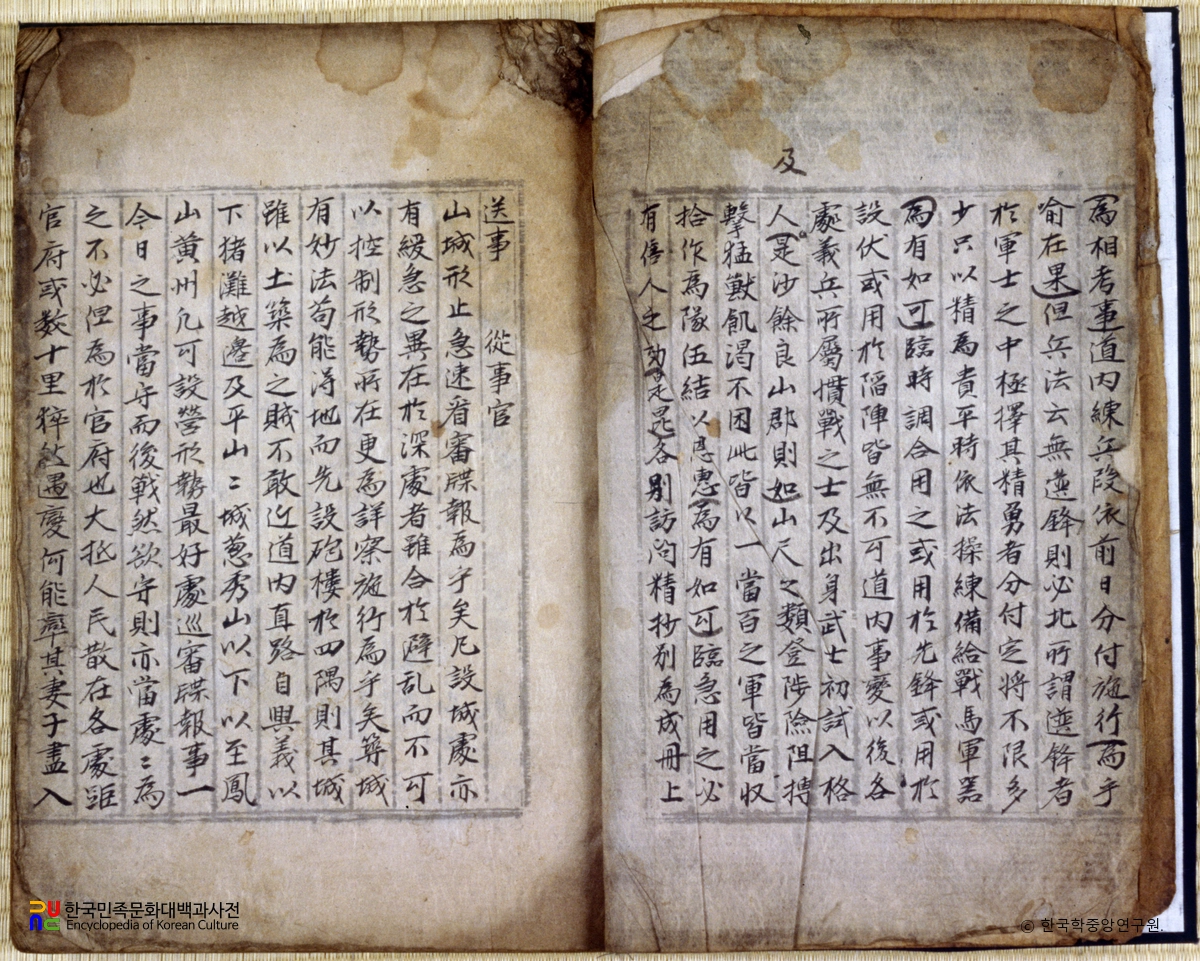 及
爲相考事道內練兵段依前日分付施行爲乎
喻在果但兵法云無選鋒則必北所謂選鋒者
於軍士之中極擇其精勇者分付定將不限多
少只以精爲貴平時依法操練備給戰馬軍器
爲有如可臨時調合用之或用於先鋒或用於
設伏或用於陷陣皆無不可道內事變以後各
處義兵所屬慣戰之士及出身武士初試入格
人是沙餘良山郡則如山尺之類登陟險阻搏
擊猛獸飢渴不困此皆以一當百之軍皆當收
拾作爲隊伍結以恩惠爲有如可臨急用之必
有倍人之功是昆各別訪問精抄別爲成冊上
送事 從事官
山城形止急速看審牒報爲乎矣凡設城處亦
有緩急之異在於深處者雖合於避乱而不可
以控制形勢所在更爲詳察施行爲乎矣築城
有妙法苟能得地而先設砲樓於四隅則其城
雖以土築爲之賊不敢近道內直路自興義以
下猪灘越邊及平山〻城蔥秀山以下以至鳳
山黃州凡可設營形勢最好處巡審牒報事一
今日之事當守而後戰然欲守則亦當處〻爲
之不必泥爲於官府也大抵人民散在各處距
官府或數十里猝然遇變何能率其妻子盡入
한국민족문화대백과사전
Encyclopedia of Korean Culture
© 한국학중앙연구원.